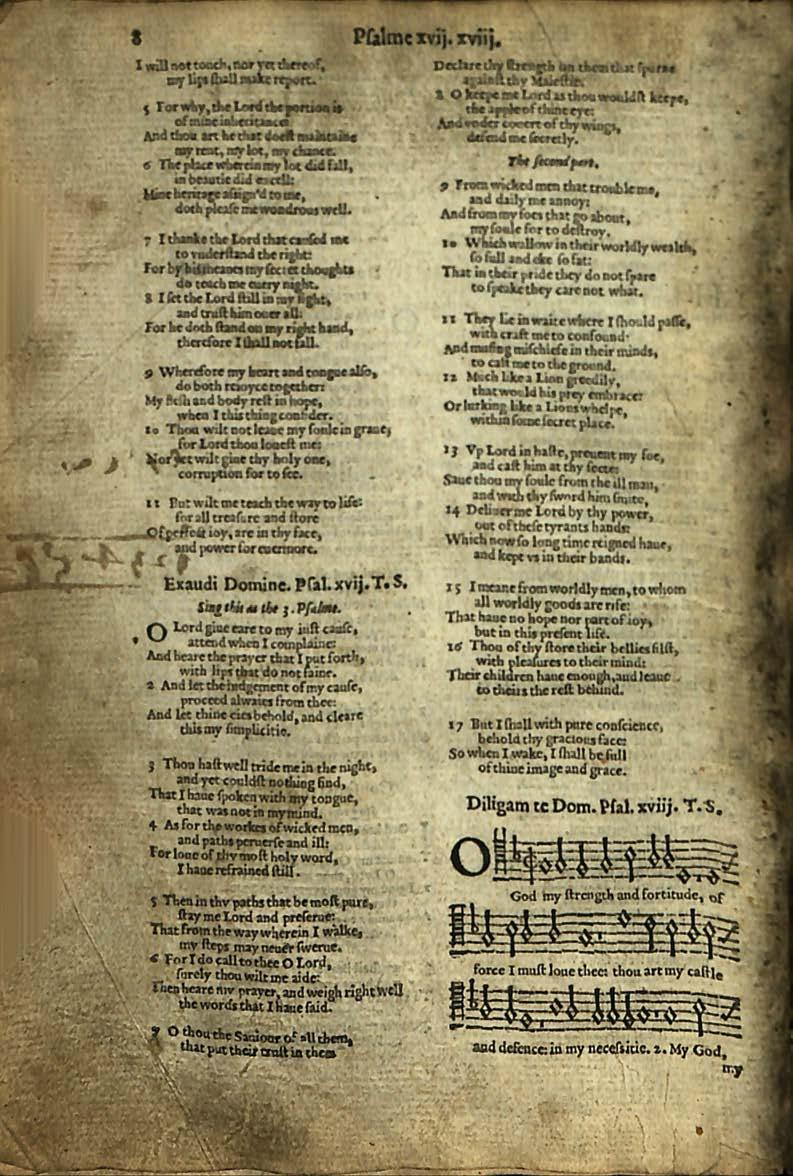 8
Pſalme xvij. xviij.
I will not touch, nor yet thereof,
my lips ſhall make report.
5 For why, the Lord the portion is
of mine inheritance
And thou art he that doeſt maintaine
my rent, my lot, my chance.
6 The place wherein my lot did fall,
in beautie did excell:
Mine heritage aſſign'd to me,
doth pleaſe me wondrous well.
7 I thanke the Lord that cauſed me
to vnderſtand the right:
For by his meanes my ſecret thoughts
do teach me euery night.
8 I ſet the Lord ſtill in my ſight,
and truſt him ouer all:
For he doth ſtand on my right hand,
therefore I ſhall not fall.
9 Wherefore my heart and tongue alſo,
do both reioyce together:
My fleſh and body reſt in hope,
when I this thing conſider.
10 Thou wilt not leaue my ſoule in graue,
for Lord thou loueſt me:
Nor yet wilt giue thy holy one,
corruption for to ſee.
11 But wilt me teach the way to life:
for all treaſure and ſtore
Of perfect ioy, are in thy face,
and power for euermore.
Exaudi Domine. Pſal. xvij. T. S.
Sing this as the 3. Pſalme.
O Lord giue eare to my iuſt cauſe,
attend when I complaine:
And heare the prayer that I put forth,
with lips that do not faine.
2 And let the iudgement of my cauſe,
proceed alwaies from thee:
And let thine eies behold, and cleare
this my ſimplicitie.
3 Thou haſt well tride me in the night,
and yet couldſt nothing find,
That I haue ſpoken with my tongue,
that was not in my mind.
4 As for the workes of wicked men,
and paths peruerſe and ill:
For loue of thy moſt holy word,
I haue refrained ſtill.
5 Then in thy paths that be moſt pure,
ſtay me Lord and preſerue:
That from the way wherein I walke,
my ſteps may neuer ſwerue.
6 For I do call to thee O Lord,
ſurely thou wilt me aide:
Then heare my prayer, and weigh right well
the words that I haue ſaid.
7 O thou the Sauiour of all them,
that put their truſt in thee
Declare thy ſtrength on them that ſpurne
againſt thy Maieſtie.
8 O keepe me Lord as thou wouldſt keepe,
the apple of thine eye:
And vnder couert of thy wings,
defend me ſecretly.
The ſecond part.
9 From wicked men that trouble me,
and daily me annoy:
And from my foes that go about,
my ſoule for to deſtroy.
10 Which wallow in their worldly wealth,
ſo full and eke ſo fat:
That in their pride they do not ſpare
to ſpeake they care not what.
11 They lie in waite where I ſhould paſſe,
with craft me to confound:
And muſing miſchiefe in their minds,
to caſt me to the ground.
12 Much like a Lion greedily,
that would his prey embrace:
Or lurking like a Lions whelpe,
within ſome ſecret place.
13 Vp Lord in haſte, preuent my foe,
and caſt him at thy feete:
Saue thou my ſoule from the ill man,
and with thy ſword him ſmite,
14 Deliuer me Lord by thy power,
out of theſe tyrants hands:
Which now ſo long time reigned haue,
and kept vs in their bands.
15 I meane from worldly men, to whom
all worldly goods are rife:
That haue no hope nor part of ioy,
but in this preſent life.
16 Thou of thy ſtore their bellies filſt,
with pleaſures to their mind:
Their children haue enough, and leaue
to theirs the reſt behind.
17 But I ſhall with pure conſcience,
behold thy gracious face:
So when I wake, I ſhall be full
of thine image and grace.
Diligam te Dom. Pſal. xviij. T. S.
O
God my ſtrength and fortitude, of
force I muſt loue thee: thou art my caſtle
and defence: in my neceſſitie. 2. My God,
my